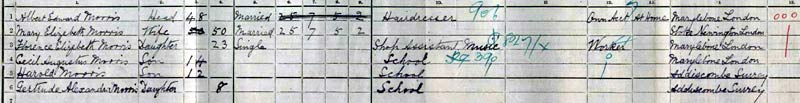 1 Albert Edward Morris Head 48 Married 25 7 5 2 Hairdresser 906 Own Acct At Home Marylebone London 000
2 Mary Elizabeth Morris Wife 50 Married 25 7 5 2 Stoke Newington London
3 Florence Elizabeth Morris Daughter 23 Single Shop Assistant Music Worker Marylebone London
4 Cecil Augustus Morris Son 14 School Marylebone London
5 Harold Morris Son 12 School Addiscombe Surrey
6 Gertrude Alexander Morris Daughter 8 School Addiscombe Surrey